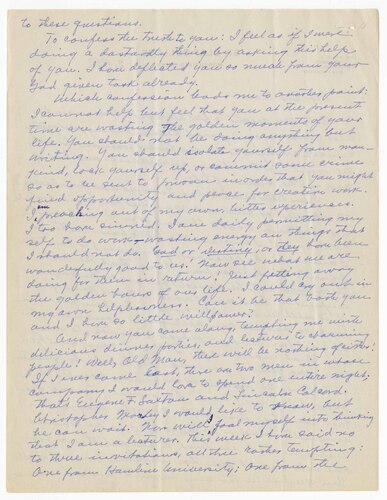 to these questions.
To confess the truth to you: I feel as if I were
doing a dastardly thing by asking this help
of you. I have deflected you so much from your
God given task already.
Which confession leads me to another point:
I cannot help but feel that you at the present
time are wasting the golden moments of your
life. You should not be doing anything but
writing. You should isolate yourself from man-
kind, lock yourself up, or commit some crime
so as to be sent to prison in order that you might
find opportunity and peace for creative work.
I am preaching out of my own bitter experiences.
I too have sinned. I am daily permitting my
self to do work - wasting energy on things that
I should not do. God or destiny, or they have been
wonderfully good to us. Now see what we are
doing for them in return! Just fetting away
the golden hours of our life. I could cry out in
my own helplessness. Can it be that both you
and I have so little willpower?
And now you come along, tempting me with
delicious dinner parties, and lectures to charming
people! Well, Old Man, there will be nothing of it!
If I ever come East, there are two men in whose
company I would love to spend one entire night;
that's Eugene F. Saxton and Lincoln Colcord.
Christopher I would like to know, but
he can wait. Nor will I fool myself into thinking
that I am a lecturer. This week I have said no
to three invitations, all three rather tempting:
One from Hamline University; One from the